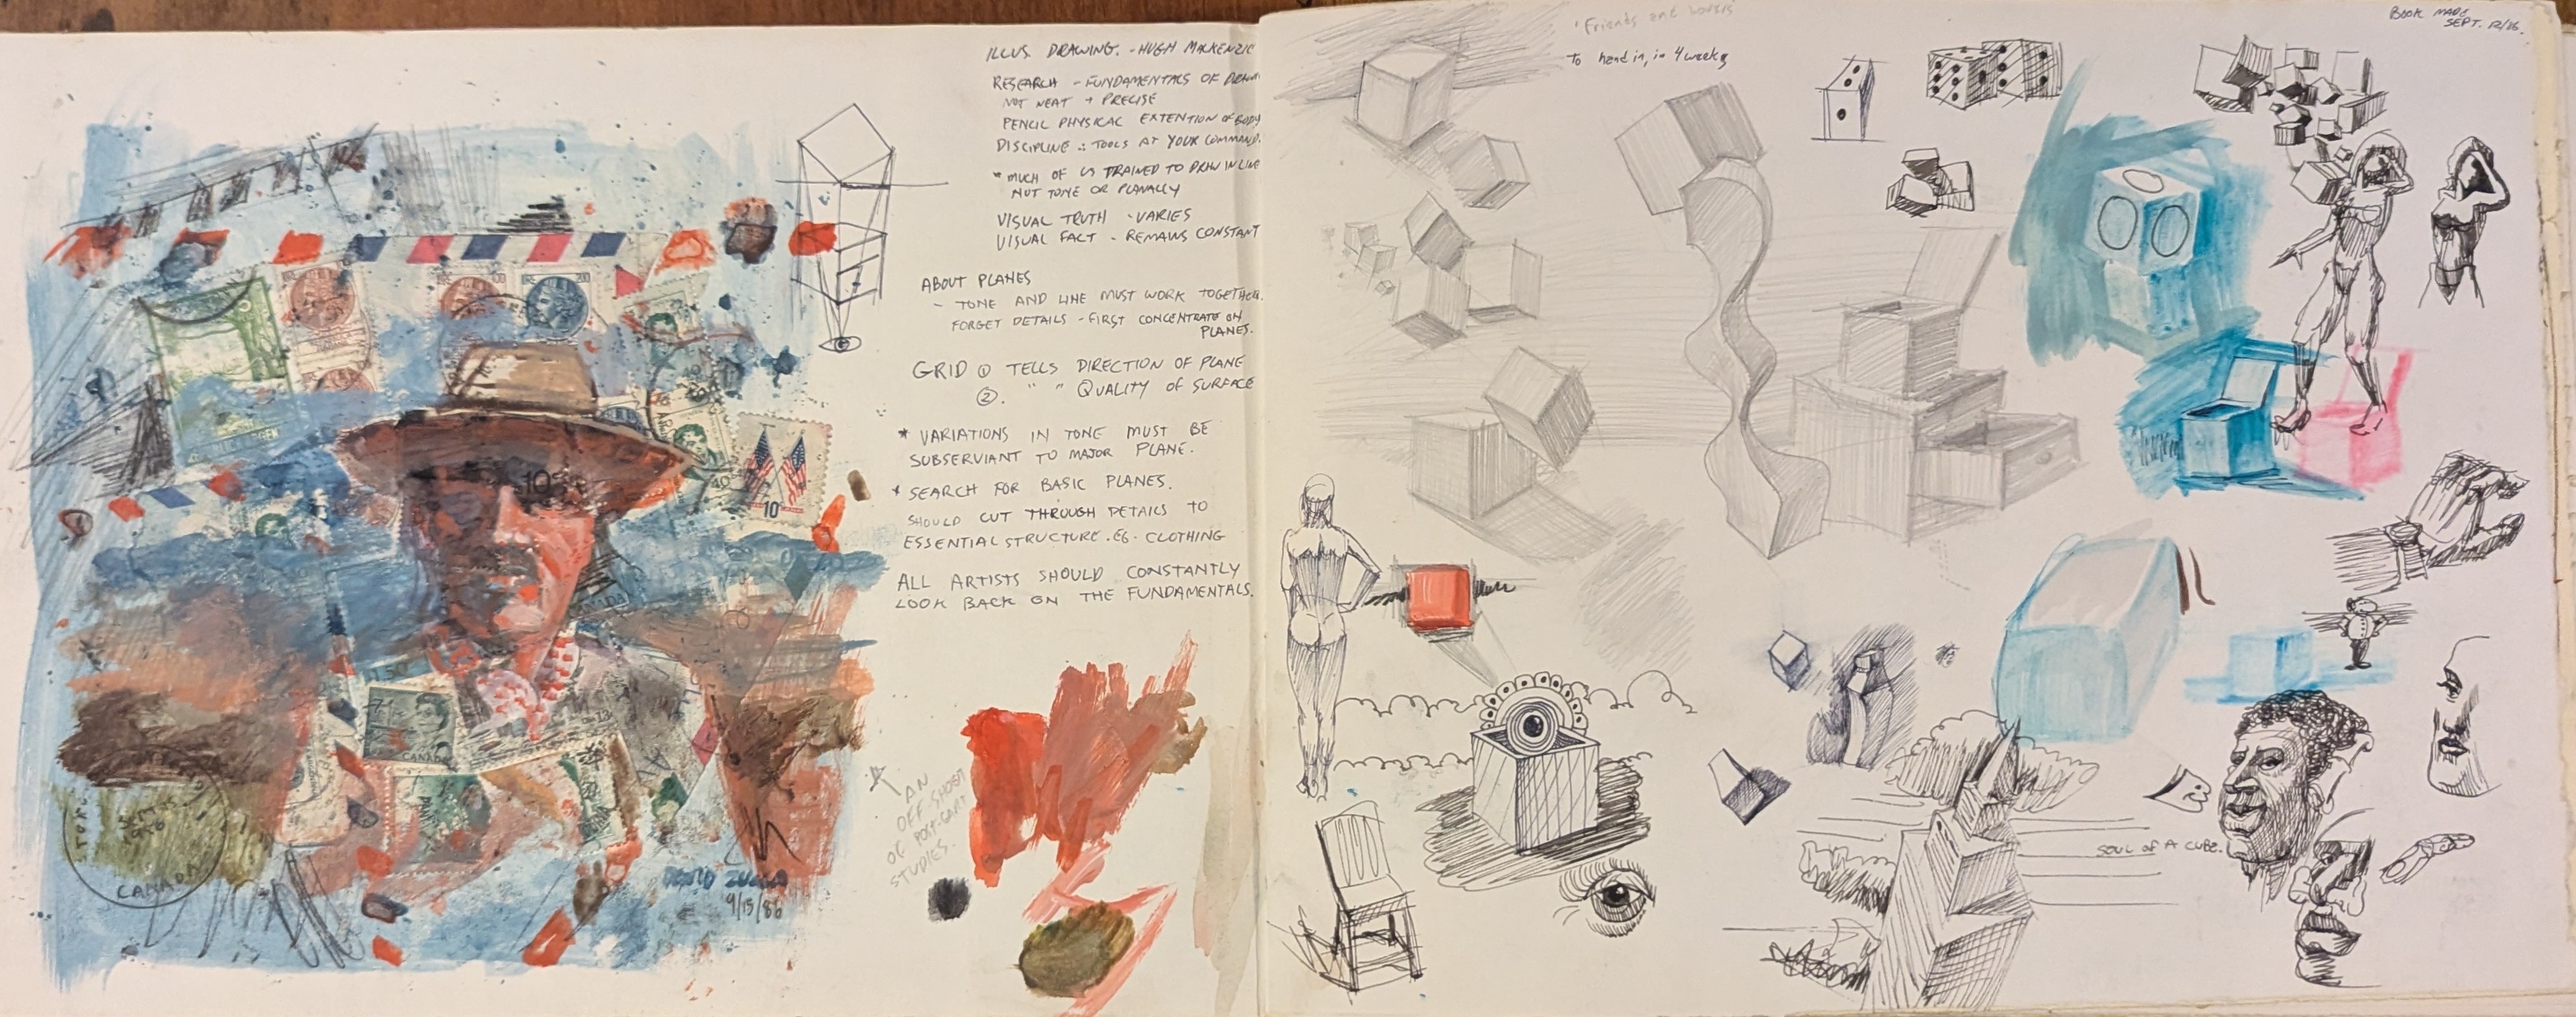 ILLUS. DRAWING. - HUGH MACKENZIE
RESEARCH - FUNDAMENTALS OF DRAW
NOT NEAT + PRECISE
PENCIL PHYSICAL EXTENTION OF BODY
DISCIPLINE ∴ TOOLS AT YOUR COMMAND.
* MUCH OF US TRAINED TO DRAW IN LINE
NOT TONE OR PLANALLY
VISUAL TRUTH - VARIES
VISUAL FACT - REMAINS CONSTANT
ABOUT PLANES
- TONE AND LINE MUST WORK TOGETHER.
FORGET DETAILS - FIRST CONCENTRATE ON
PLANES.
GRID ① TELLS DIRECTION OF PLANE
②. " " QUALITY OF SURFACE
* VARIATIONS IN TONE MUST BE
SUBSERVIANT TO MAJOR PLANE.
* SEARCH FOR BASIC PLANES.
SHOULD CUT THROUGH DETAILS TO
ESSENTIAL STRUCTURE. EG. CLOTHING
ALL ARTISTS SHOULD CONSTANTLY
LOOK BACK ON THE FUNDAMENTALS.
AN
OFF SHOOT
OF POST-CART
STUDIES.
10c
10c
CANADA
CANADA
CANADA
DAVID
9/15/86
'Friends and Lovers'
To hand in, in 4 weeks
BOOK MADE
SEPT. 12/86.
SOUL OF A CUBE.